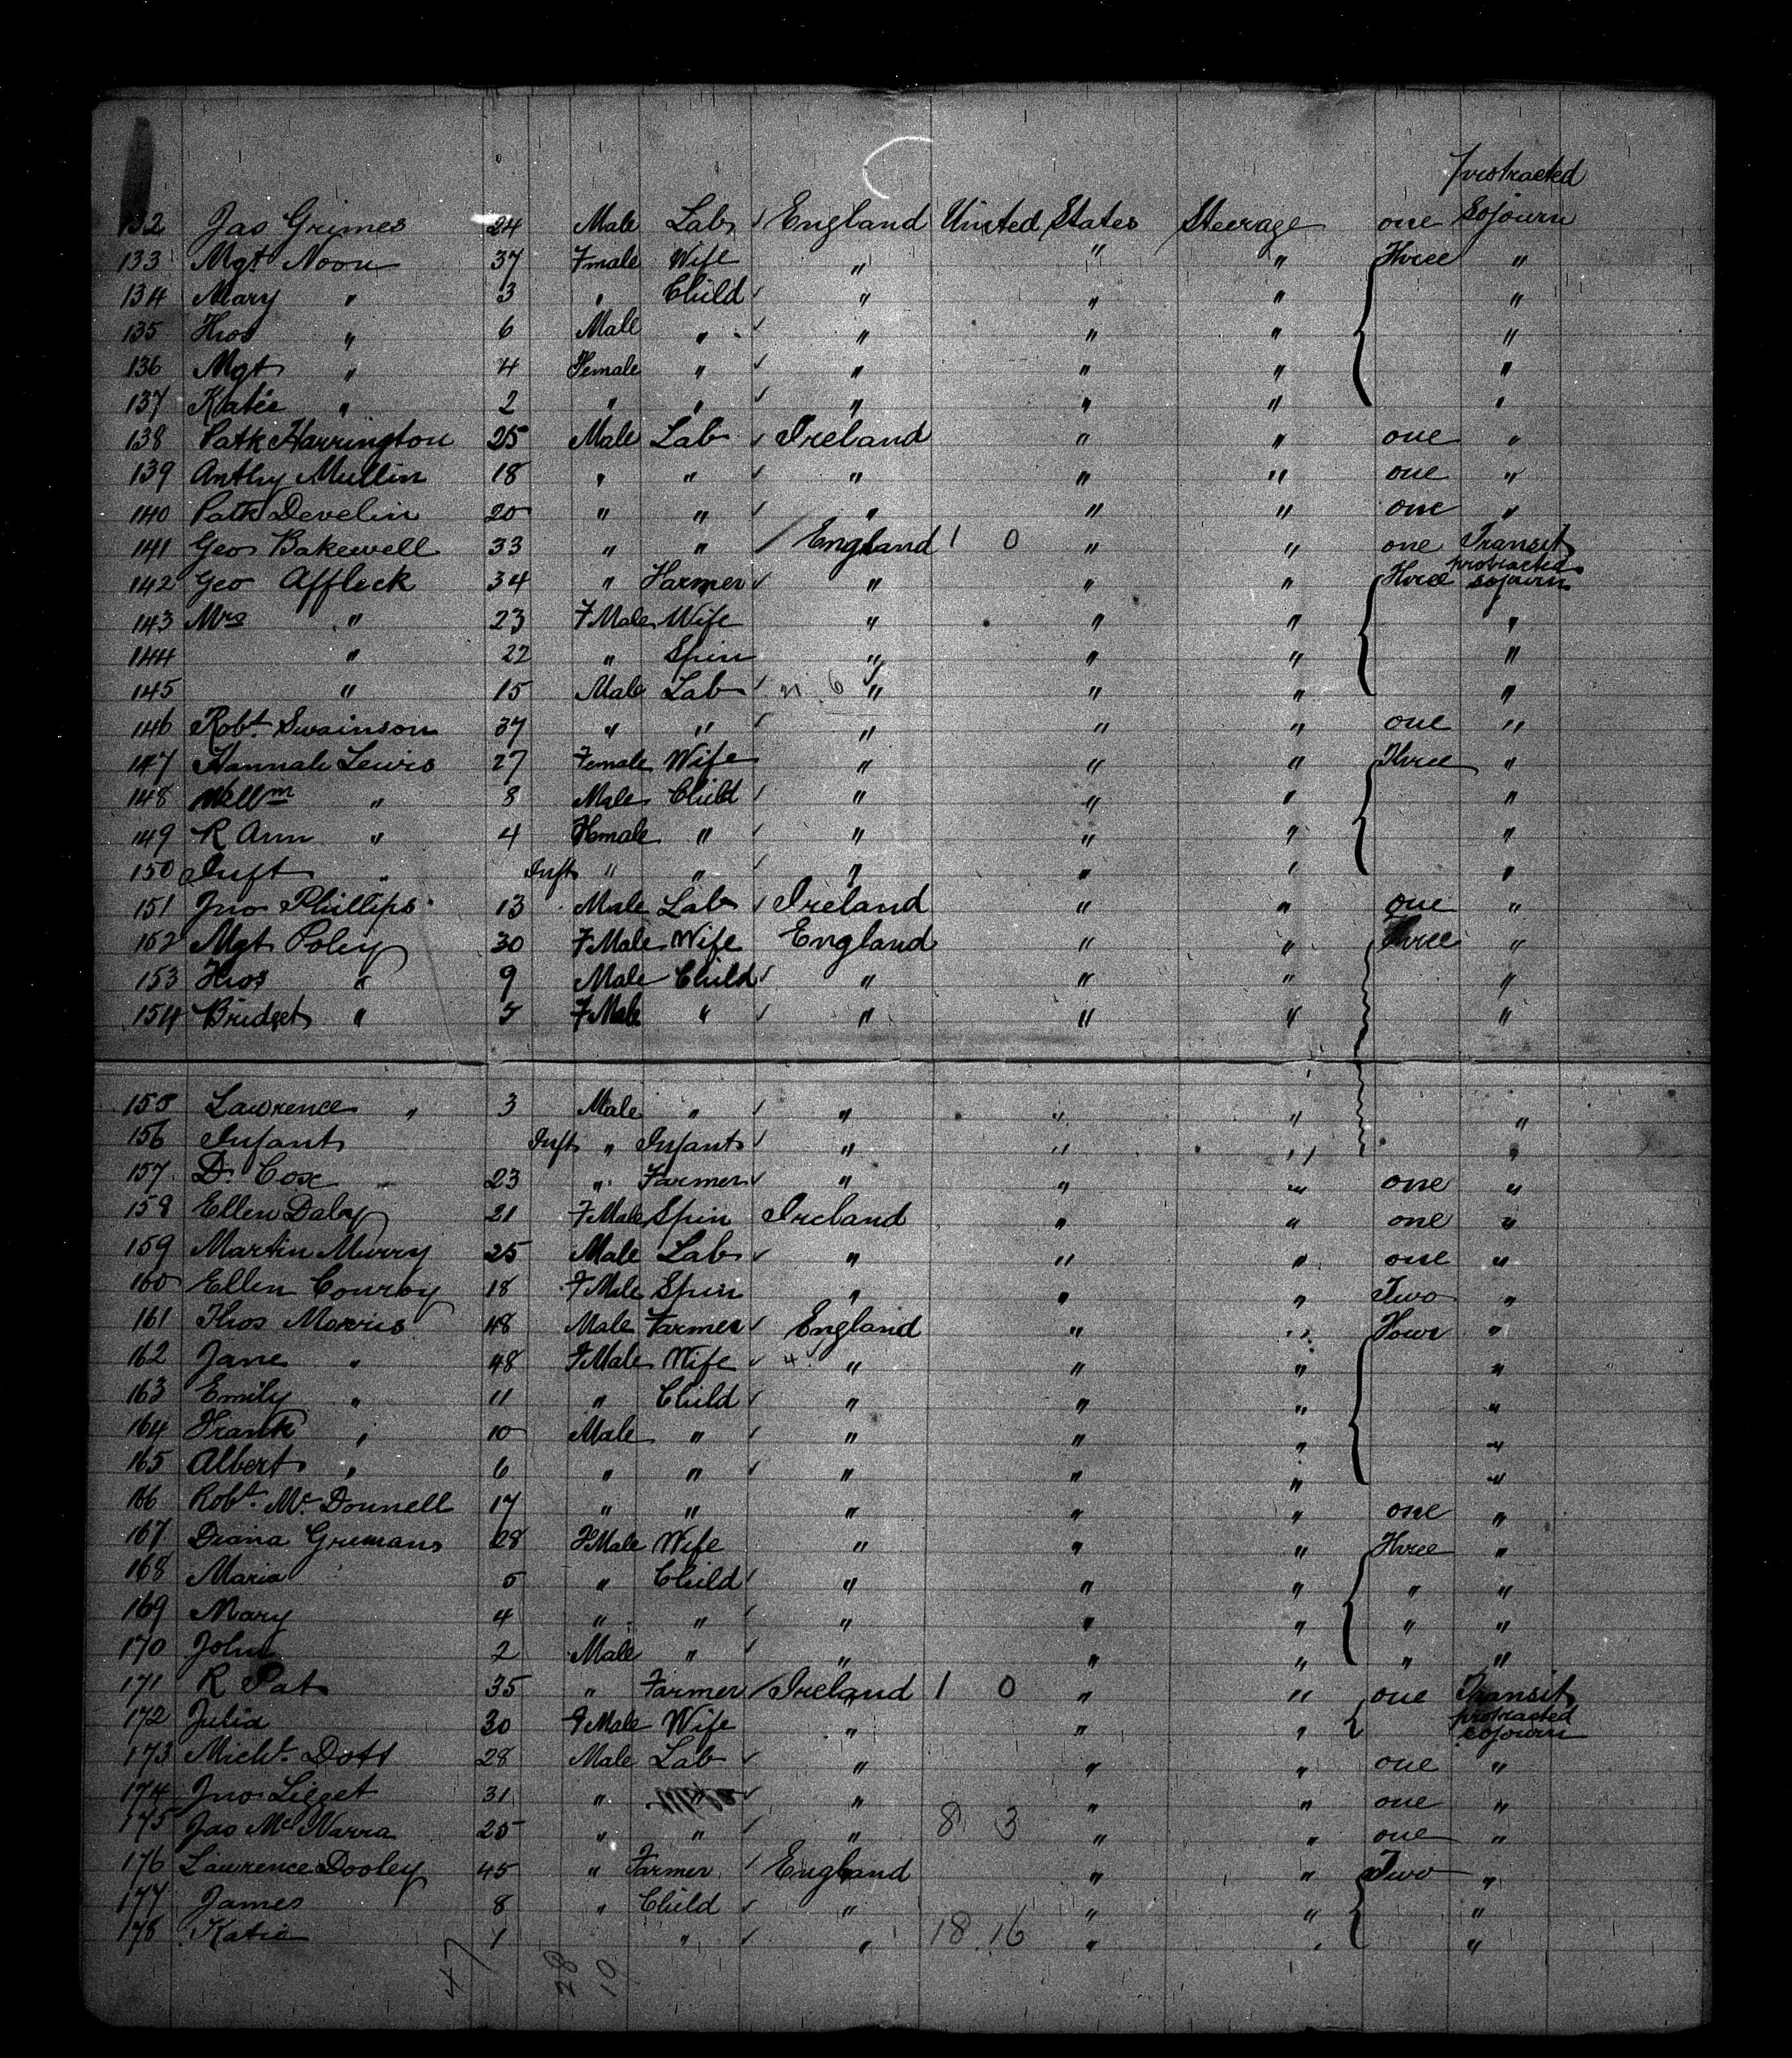 protracted
132 Jas Grimes 24 Male Lab ✓ England United States Steerage one Sojourn
133 Mgt Noon 37 Fmale Wife " " " Three "
134 Mary " 3 " Child ✓ " " " "
135 Thos " 6 Male " ✓ " " " "
136 Mgt " 4 Female " ✓ " " " "
137 Katie " 2 " " ✓ " " " "
138 Patk Harrington 25 Male Lab ✓ Ireland " " one "
139 Anthy Mullin 18 " " ✓ " " " one "
140 Patk Develin 20 " " ✓ " " " one "
141 Geo Bakewell 33 " " / England 1 0 " " one Transit
protracted
142 Geo Affleck 34 " Farmer ✓ " " " Three sojourn
143 Mrs " 23 FMale Wife " " " "
144 " 22 " Spin " " " "
145 " 15 Male Lab ✓ 6 " " " "
146 Robt Swainson 37 " " ✓ " " " one "
147 Hannah Lewis 27 Female Wife " " " Three "
148 Willm " 8 Male Child ✓ " " " "
149 R Ann " 4 Female " ✓ " " " "
150 Inft " Inft " " ✓ " " " "
151 Jno Phillips 13 Male Lab ✓ Ireland " " one "
152 Mgt Poley 30 FMale Wife England " " Three "
153 Thos " 9 Male Child ✓ " " " "
154 Bridget " 5 FMale " ✓ " " " "
155 Lawrence " 3 Male " ✓ " " " "
156 Infant Inft " Infant ✓ " " " "
157 D. Cox 23 " Farmer ✓ " " " one "
158 Ellen Daly 21 FMale Spin Ireland " " one "
159 Martin Murry 25 Male Lab ✓ " " " one "
160 Ellen Conroy 18 FMale Spin " " " Two "
161 Thos Morris 48 Male Farmer ✓ England " " Four "
162 Jane " 48 FMale Wife ✓ 4 " " " "
163 Emily " 11 " Child ✓ " " " "
164 Frank " 10 Male " ✓ " " " "
165 Albert " 6 " " ✓ " " " "
166 Robt Mc Donnell 17 " " " " " one "
167 Diana Grumans 28 FMale Wife " " " Three "
168 Maria 5 " Child ✓ " " " " "
169 Mary 4 " " ✓ " " " " "
170 John 2 Male " ✓ " " " " "
171 R Pat 35 " Farmer / Ireland 1 0 " " one Transit
protracted
172 Julia 30 FMale Wife " " " sojourn
173 Michl Dott 28 Male Lab ✓ " " " one "
174 Jno Ligget 31 " ✓ " " " one "
175 Jas McNarra 25 " " ✓ " 8 3 " " one "
176 Lawrence Dooley 45 " Farmer ✓ England " " Two "
177 James 8 " Child ✓ " " " "
178 Katie 1 " ✓ " 18 16 " " "
47 28 10